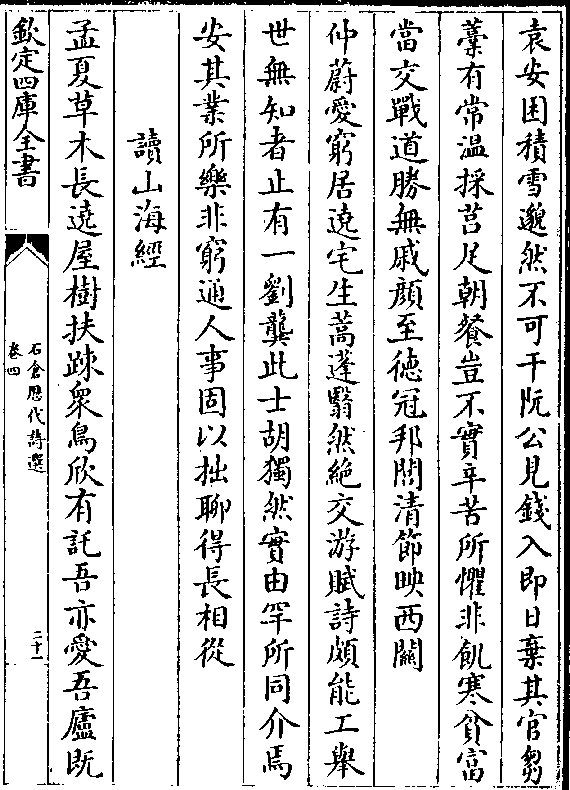 袁安困積雪邈然不可干阮公見錢入即日棄其官芻
藁有常温採莒足朝餐豈不實辛苦所懼非飢寒貧富
當交戰道勝無戚顔至徳冠邦閭清節映西關
仲蔚愛窮居遶宅生蒿蓬翳然絶交游賦詩頗能工舉
世無知者止有一劉龔此士胡獨然實由罕所同介焉
安其業所樂非窮通人事固以拙聊得長相從
讀山海經
孟夏草木長遶屋樹扶踈衆鳥欣有託吾亦愛吾廬既
欽定四庫全書
石倉歴代詩選
卷四
二十一